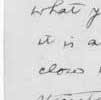 what y
it is a
close